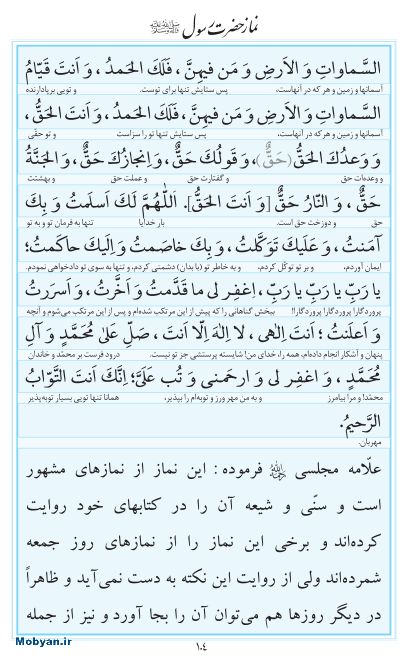 نماز حضرت رسول ﷺ
السَّماواتِ وَ الاَرضِ وَ مَن فیهِنَّ ، فَلَكَ الحَمدُ ، وَ اَنتَ قَیّامُ
آسمانها و زمین و هر که در آنهاست، پس ستایش تنها برای توست. و تویی برپادارنده
السَّماواتِ وَ الاَرضِ وَ مَن فیهِنَّ ، فَلَكَ الحَمدُ ، وَ اَنتَ الحَقُّ ،
آسمانها و زمین و هر که در آنهاست، پس ستایش تنها تو را سزاست و تو حقّی
وَ وَعدُكَ الحَقُّ (حَقٌّ) ، وَ قَولُكَ حَقٌّ ، وَ اِنجازُكَ حَقٌّ ، وَ الجَنَّةُ
و وعده‌ات حق و گفتارت حق و عملت حق و بهشت
حَقٌّ ، وَ النّارُ حَقٌّ [وَ اَنتَ الحَقُّ]. اَللّٰهُمَّ لَكَ اَسلَمتُ وَ بِكَ
حق و دوزخت حق است. بار خدایا تنها به فرمان تو و به تو
آمَنتُ ، وَ عَلَیكَ تَوَكَّلتُ ، وَ بِكَ خاصَمتُ وَ اِلَیكَ حاكَمتُ؛
ایمان آوردم، و بر تو توکّل کردم، و به خاطر تو (با بدان) دشمنی کردم، و تنها به سوی تو دادخواهی نمودم.
یا رَبِّ یا رَبِّ یا رَبِّ ، اِغفِر لی ما قَدَّمتُ وَ اَخَّرتُ ، وَ اَسرَرتُ
پروردگارا پروردگارا پروردگارا! ببخش گناهانی را که پیش از این مرتکب شده‌ام و پس از این مرتکب می‌شوم و آنچه
وَ اَعلَنتُ؛ اَنتَ اِلٰهی، لا اِلٰهَ اِلّا اَنتَ ، صَلِّ عَلیٰ مُحَمَّدٍ وَ آلِ
پنهان و آشکار انجام داده‌ام، همه را، خدای من! شایسته پرستشی جز تو نیست. درود فرست بر محمّد و خاندان
مُحَمَّدٍ ، وَ اغفِر لی وَ ارحَمنی وَ تُب عَلَیَّ؛ اِنَّكَ اَنتَ التَّوّابُ
محمّد! و مرا بیامرز و به من مهر ورز و توبه‌ام را بپذیر، همانا تنها تویی بسیار توبه‌پذیر
الرَّحیمُ.
مهربان.
علّامه مجلسی فرموده: این نماز از نمازهای مشهور
است و سنّی و شیعه آن را در کتابهای خود روایت
کرده‌اند و برخی این نماز را از نمازهای روز جمعه
شمرده‌اند ولی از روایت این نکته به دست نمی‌آید و ظاهراً
در دیگر روزها هم می‌توان آن را بجا آورد و نیز از جمله
١٠٤
Mobyan.ir